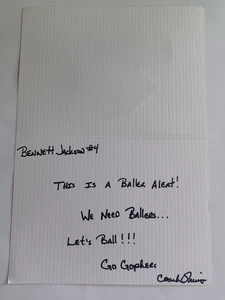 Bennett Jackson #4
This Is A Baller Alert!
We Need Ballers...
Let's Ball!!!
Go Gophers
Coach